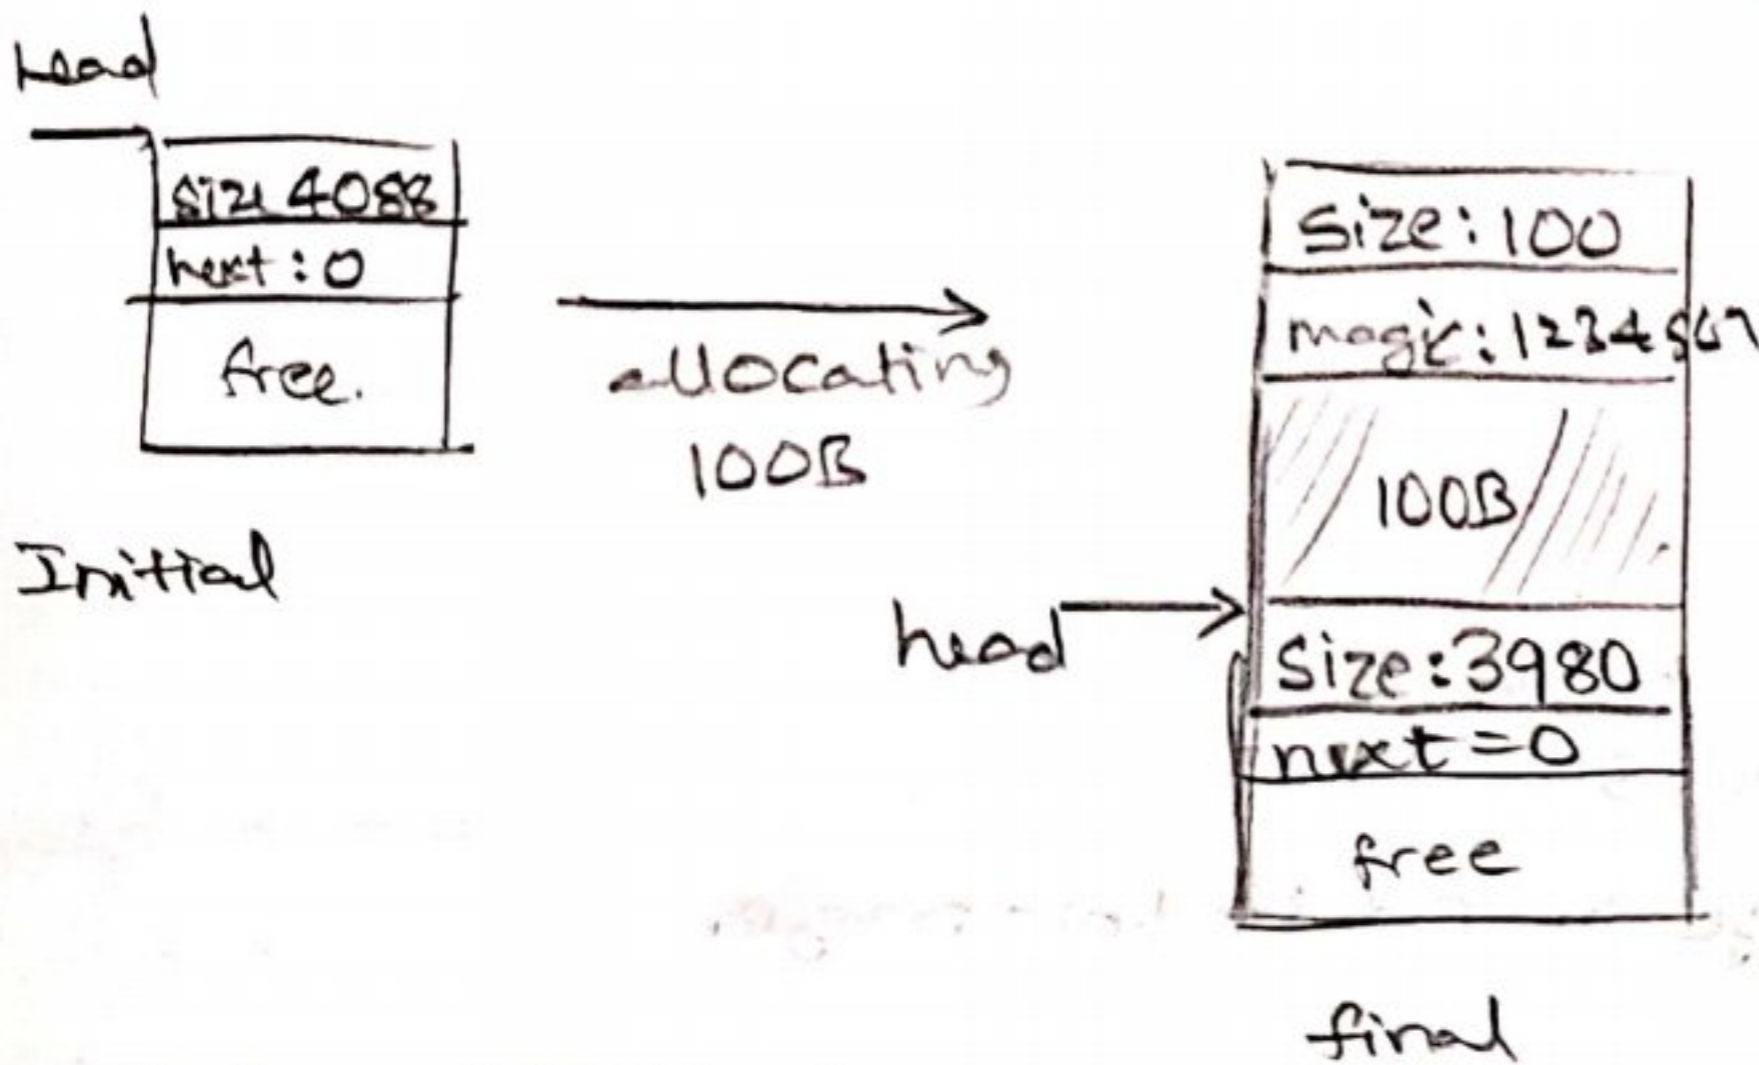 head
size 4088
next : 0
free.
Initial
allocating
100B
Size : 100
magic : 1234567
100B
head
Size : 3980
next = 0
free
final